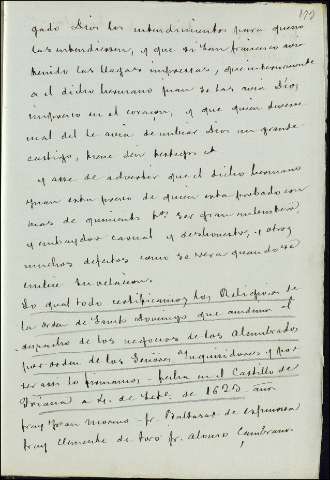 gado Dios los entendimientos para que no
las entendiesen, y que si San francisco avia
tenido las llagas impresas, que interiormente
a el dicho hermano Juan se las avia Dios
impreso en el corazon, y que quien dixese
mal del le avia de embiar Dios un grande
castigo, tiene diez testigos et
y asse de advertir que el dicho hermano
Juan esta preso de quien esta probado con
mas de quinientos tos. ser gran embustero,
y embaydor carnal y deshonesto, y otros
muchos defectos como se vera quando se
embie su relacion.
Lo qual todo certificamos los Religiosos de
la orden de Santo Domingo que anemos al
despacho de los negocios de los Alumbrados
por orden de los Señores Inquisidores y por
ser assi lo firmamos - fecha en el Castillo de
Triana a 4. de Sete. de 1623 años
fray Juan Moreno - fr. Baltasar de espinosa
fray Clemente de toro fr. Alonso Zambrano